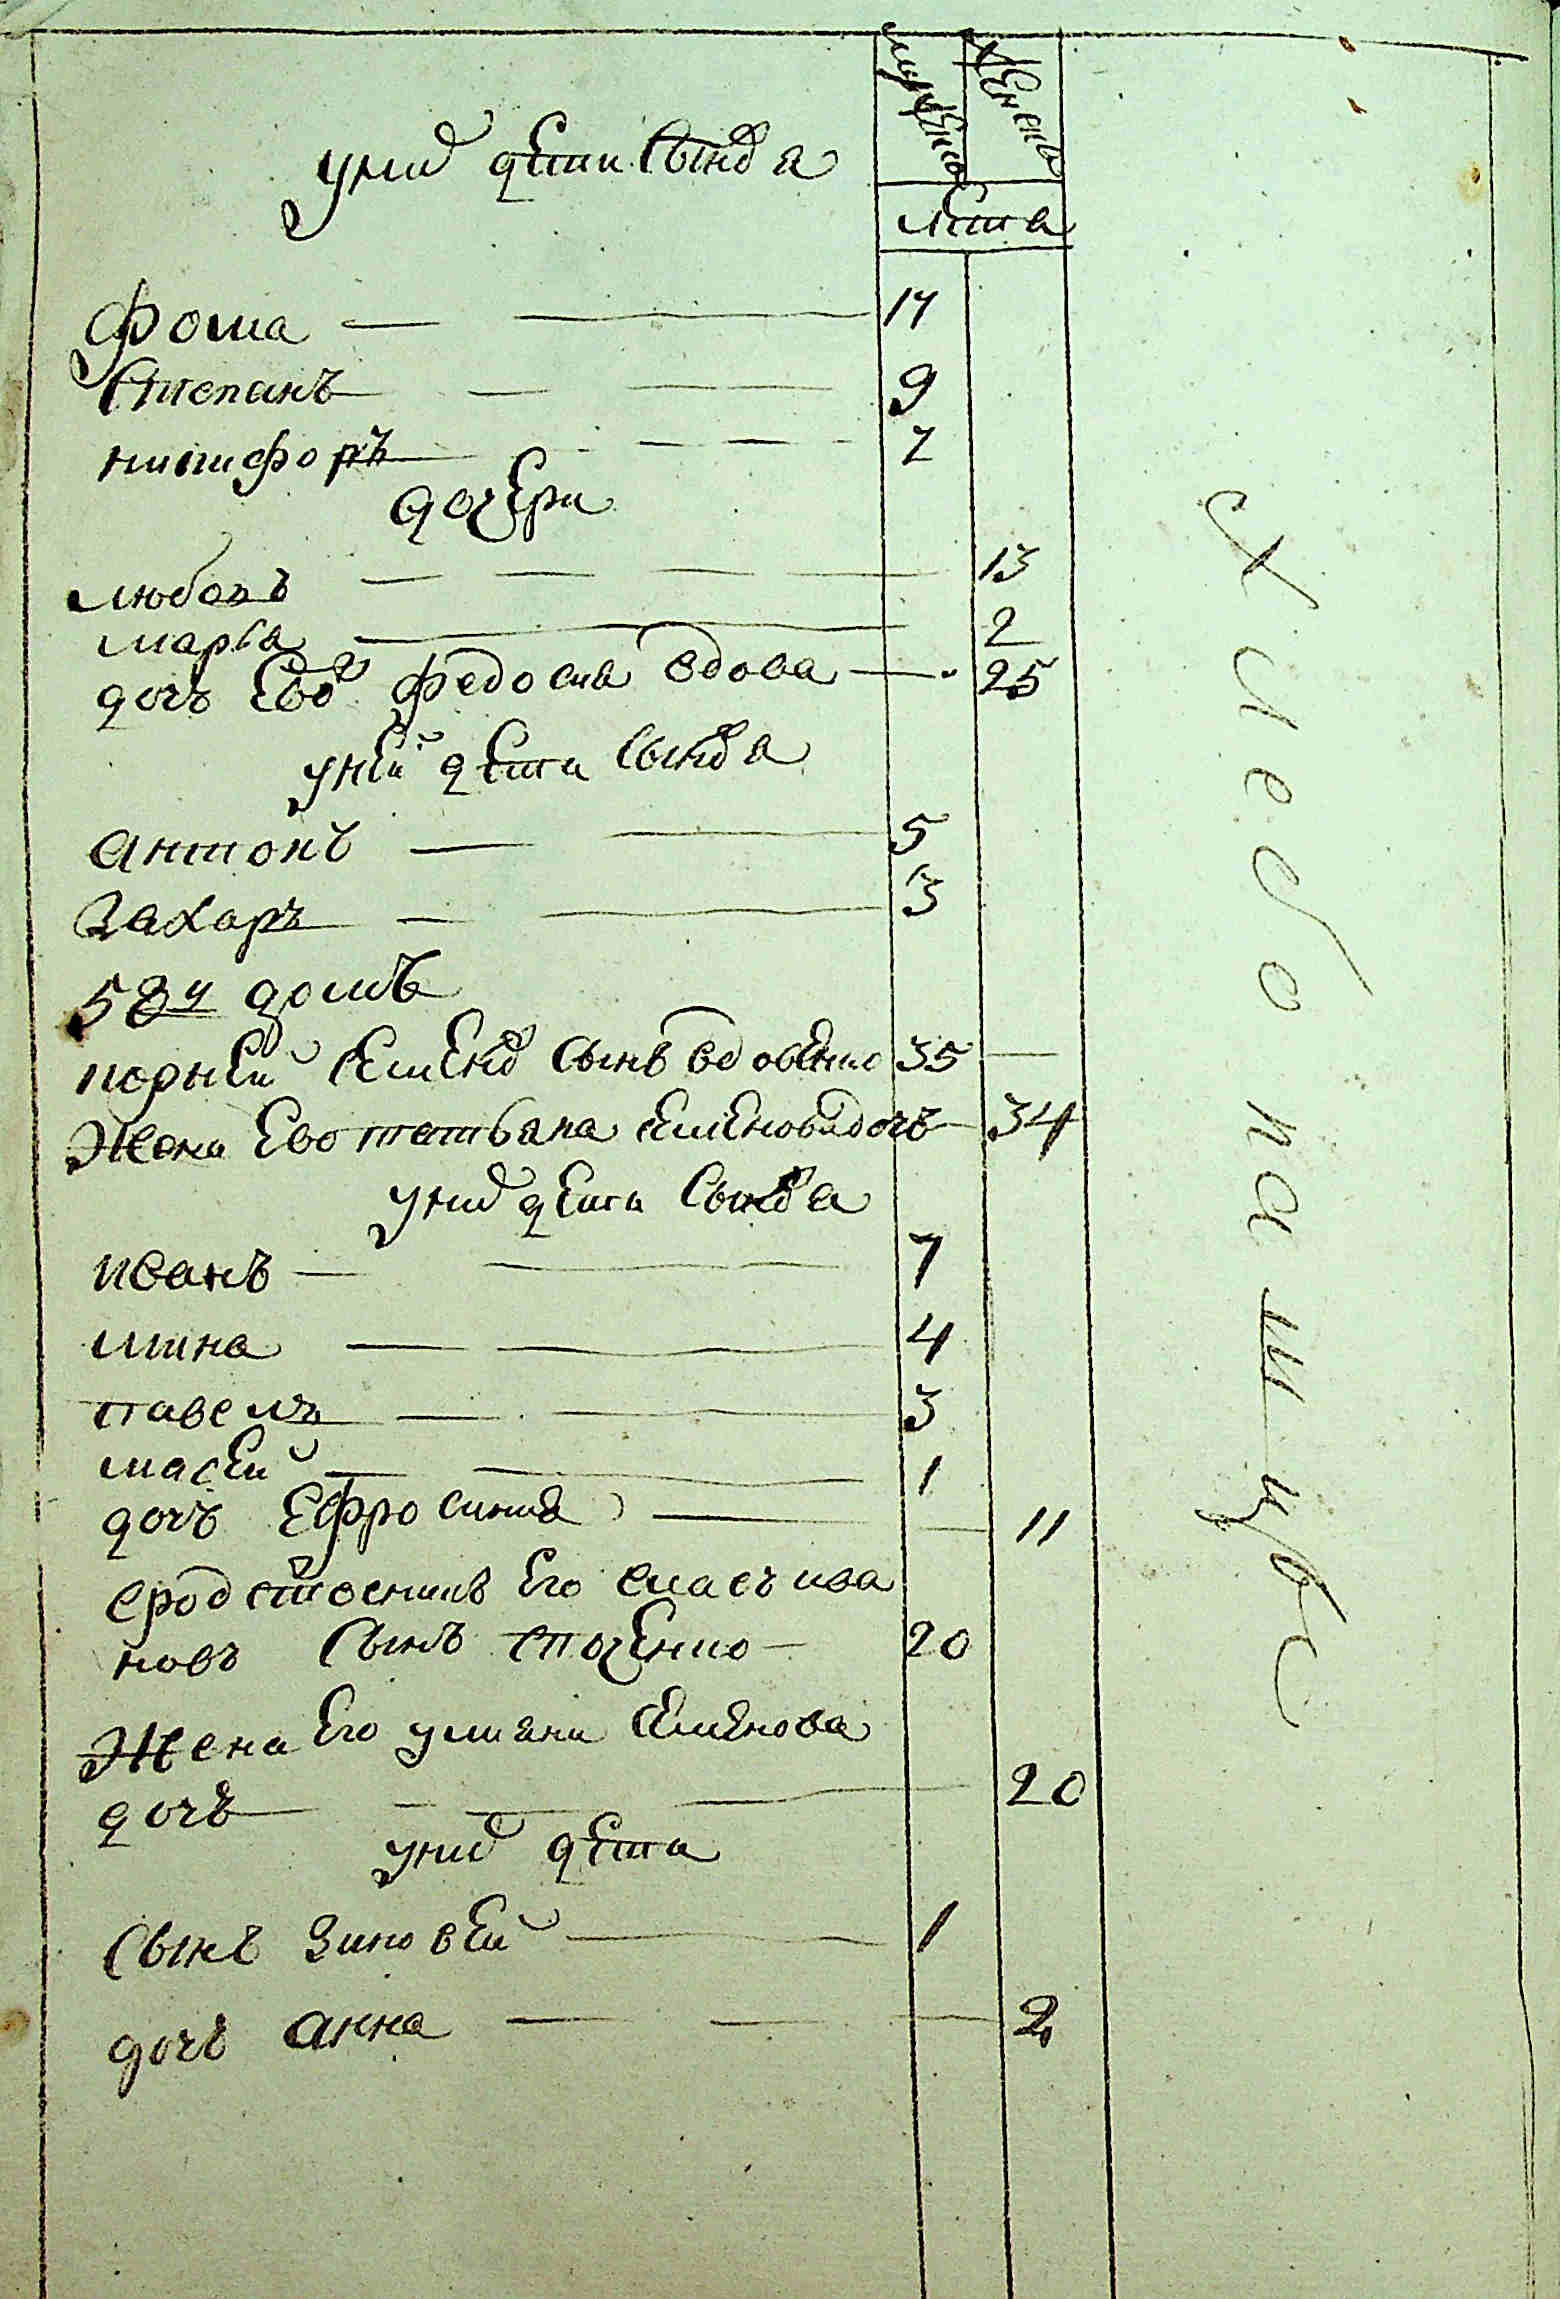 мужескъ женскъ
у них дети сынов я
лета
Фома 17
Степанъ 9
никифоръ 7
дочери
любовь 13
марья 2
дочь Ево федосия вдова 25
у ней дети сынов я
антонъ 5
захаръ 3
58й домъ
Семенов сынъ вдовенко 35
Жена Ево татьяна семенова дочь 34
у них дети сынов я
иванъ 7
мина 4
павелъ 3
масей 1
дочь Ефросиния 11
сродственикъ Его власъ ива
новъ сынъ 20
Жена Его улияна семенова
дочь 20
у них дети
сынъ зиновей 1
дочь анна 2
хлебопашцы